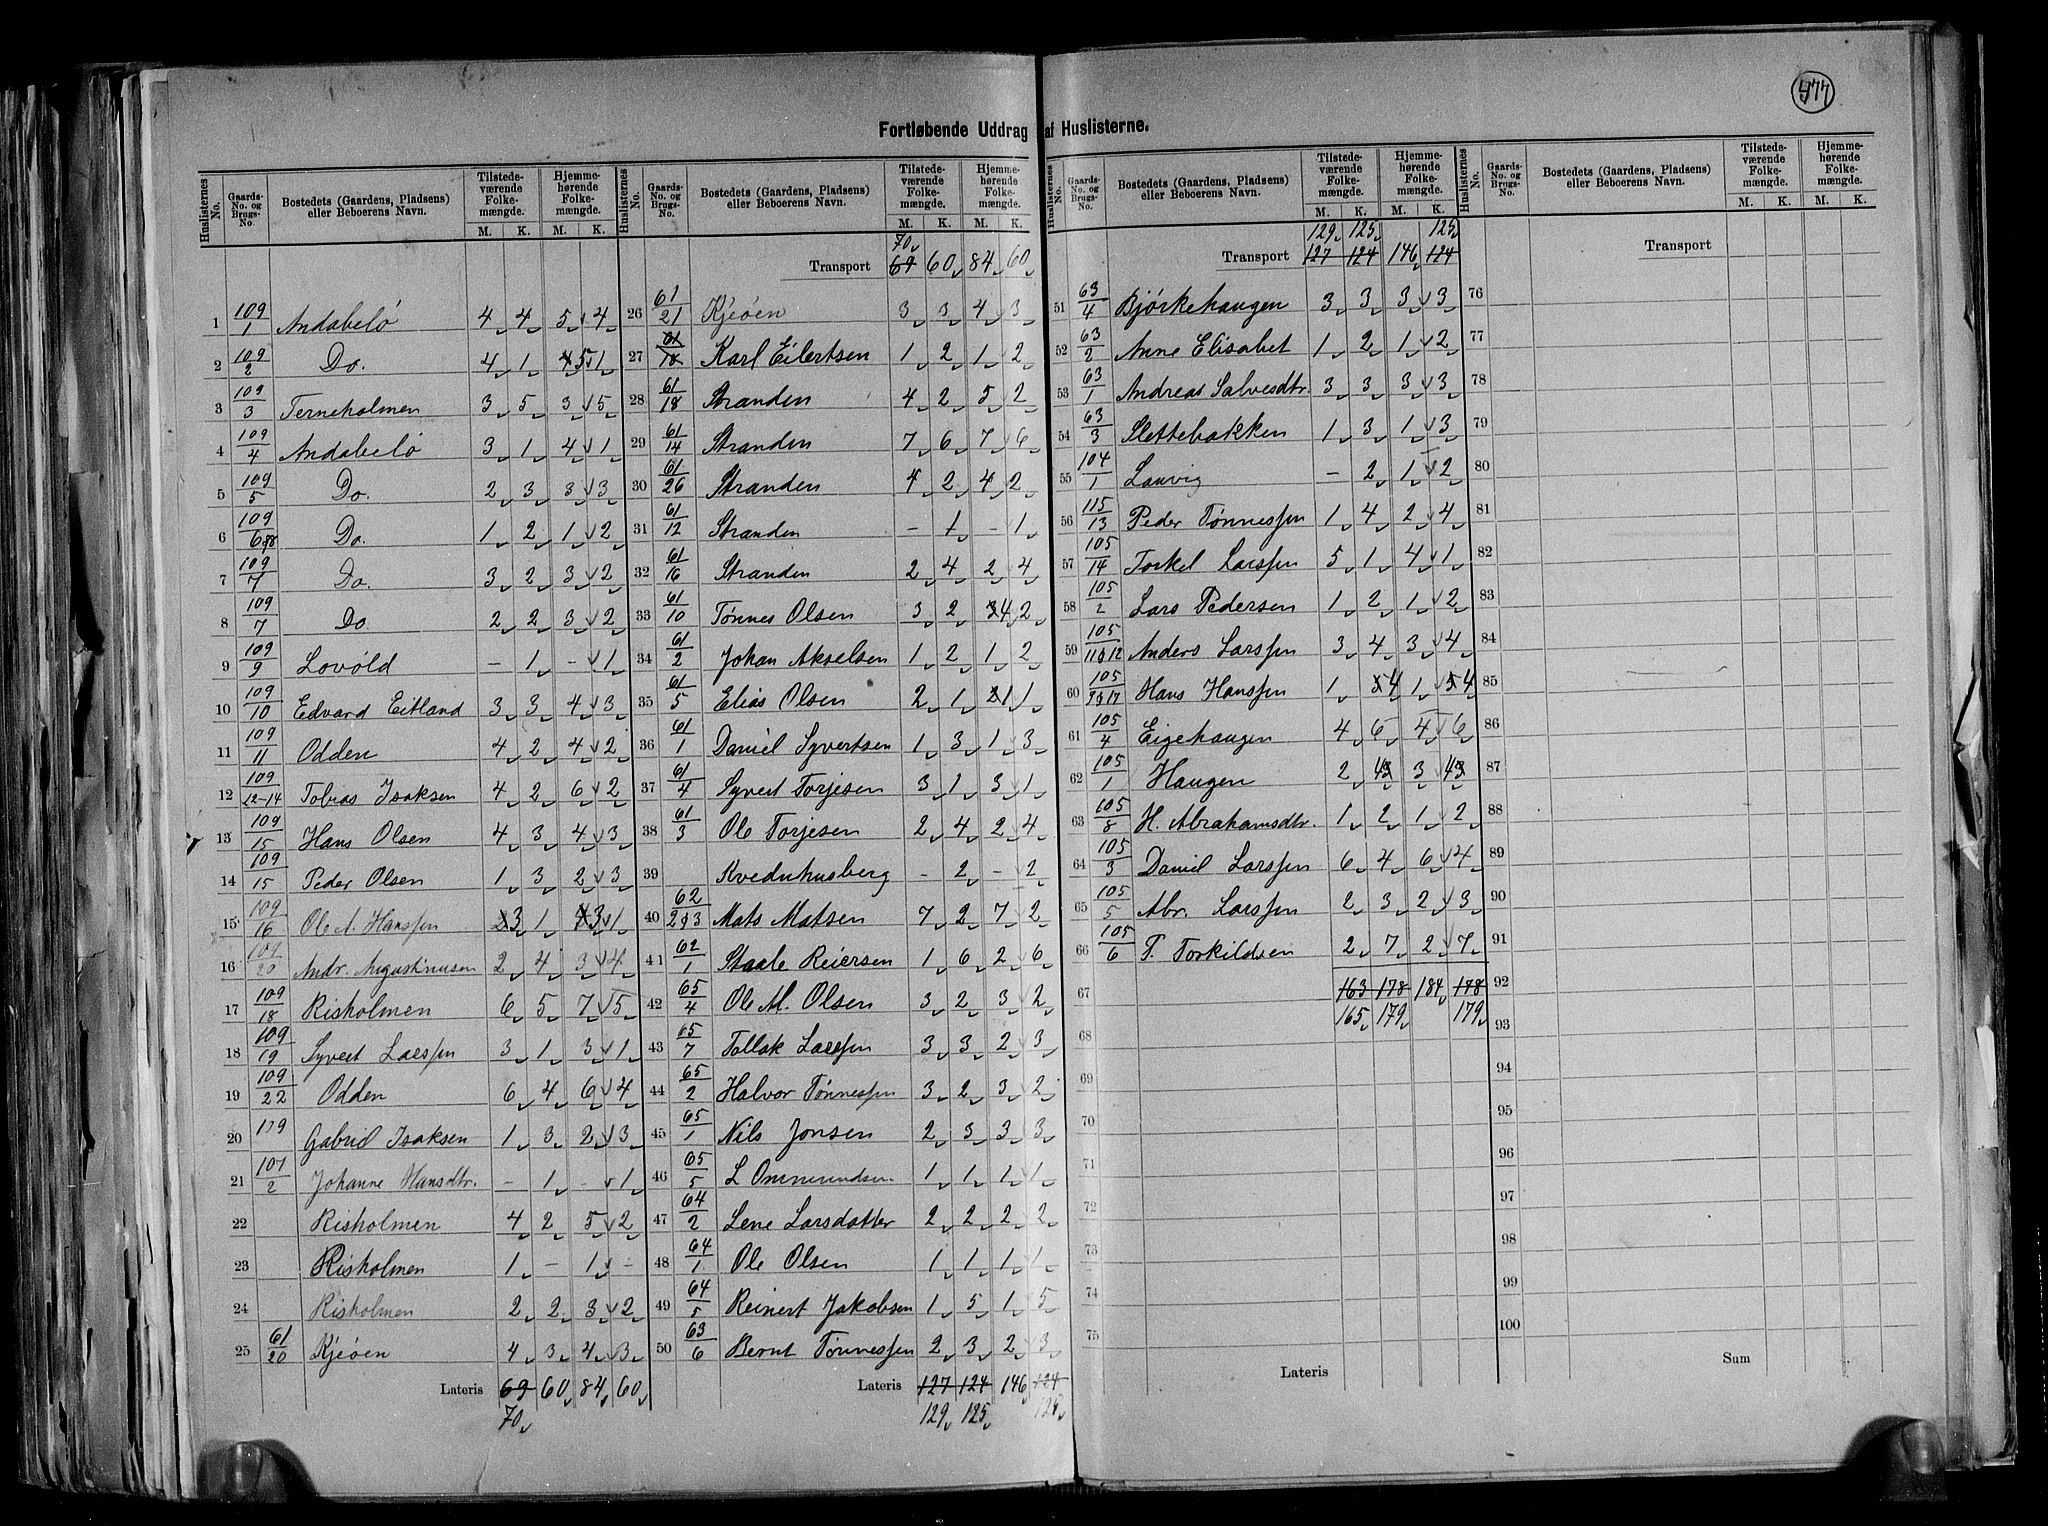 977
Fortløbende Uddrag af Huslisterne.
Huslisternes No. Gaards-No. og Brugs-No. Bostedets (Gaardens, Pladsens) eller Beboerens Navn. Tilstedeværende Folkemængde. Hjemmehørende Folkemængde. M. K. M. K.
1 109/1 Andabelø 4 4 5 4
2 109/2 Do. 4 1 4 5 1
3 109/3 Terneholmen 3 5 3 5
4 109/4 Andabelø 3 1 4 1
5 109/5 Do. 2 3 3 3
6 109/6 Do. 1 2 1 2
7 109/7 Do. 3 2 3 2
8 109/7 Do. 2 2 3 2
9 109/9 Lovold - 1 - 1
10 109/10 Edvard Eitland 3 3 4 3
11 109/11 Odden 4 2 4 2
12 109/12-14 Tobias Isaksen 4 2 6 2
13 109/15 Hans Olsen 4 3 4 3
14 109/15 Peder Olsen 1 3 2 3
15 109/16 Ole A. Hanssen 3 1 3 1
16 109/20 Andr. Augustinusen 2 4 3 4
17 109/18 Risholmen 6 5 7 5
18 109/19 Syvert Larssen 3 1 3 1
19 109/22 Odden 6 4 6 4
20 109 Gabriel Isaksen 1 3 2 3
21 109/2 Johanne Hansdtr. - 1 - 1
22 Risholmen 4 2 5 2
23 Risholmen 1 - 1 -
24 Risholmen 2 2 3 2
25 61/20 Kjeøen 4 3 4 3
Lateris 69 60 84 60
70
70
Transport 69 60 84 60
26 61/21 Kjeøen 3 3 4 3
27 61/18 Karl Eilertsen 1 2 1 2
28 61/18 Stranden 4 2 5 2
29 61/14 Stranden 7 6 7 6
30 61/26 Stranden 4 2 4 2
31 61/12 Stranden - 1 - 1
32 61/16 Stranden 2 4 2 4
33 61/10 Tønnes Olsen 3 2 3 4 2
34 61/2 Johan Akselsen 1 2 1 2
35 61/5 Elias Olsen 2 1 2 1 1
36 61/1 Daniel Syvertsen 1 3 1 3
37 61/4 Syvert Torjesen 3 1 3 1
38 61/3 Ole Torjesen 2 4 2 4
39 Kvednhusberg - 2 - 2
40 62/2&3 Mats Matsen 7 2 7 2
41 62/1 Staale Reiersen 1 6 2 6
42 65/4 Ole M. Olsen 3 2 3 2
43 65/7 Tollak Larssen 3 3 2 3
44 65/2 Halvor Tønnessen 3 2 3 2
45 65/1 Nils Jonsen 2 3 3 3
46 65/5 L Ommundsen 1 1 1 1
47 64/2 Lene Larsdatter 2 2 2 2
48 64/1 Ole Olsen 1 1 1 1
49 64/5 Reinert Jakobsen 1 5 1 5
50 63/6 Bernt Tønnessen 2 3 2 3
Lateris 127 124 146 124
129 125 125
129 125 125
Transport 127 124 146 124
51 63/4 Bjørkehaugen 3 3 3 3
52 63/2 Anne Elisabet 1 2 1 2
53 63/1 Andreas Salvesdtr. 3 3 3 3
54 63/3 Slettebakken 1 3 1 3
55 104/1 Lauvig - 2 1 2
56 115/13 Peder Tønnessen 1 4 2 4
57 105/14 Torkel Larssen 5 1 4 1
58 105/2 Lars Pedersen 1 2 1 2
59 105/11&12 Anders Larssen 3 4 3 4
60 105/9&17 Hans Hanssen 1 3 4 1 3 4
61 105/4 Eigehaugen 4 6 4 6
62 105/1 Haugen 2 4 3 3 4 3
63 105/8 H. Abrahamsdtr. 1 2 1 2
64 105/3 Daniel Larssen 6 4 6 4
65 105/5 Abr. Larssen 2 3 2 3
66 105/6 T. Torkildsen 2 7 2 7
67 163 178 184 178
165 179 179
68
69
70
71
72
73
74
75
Lateris
Transport
76
77
78
79
80
81
82
83
84
85
86
87
88
89
90
91
92
93
94
95
96
97
98
99
100
Sum